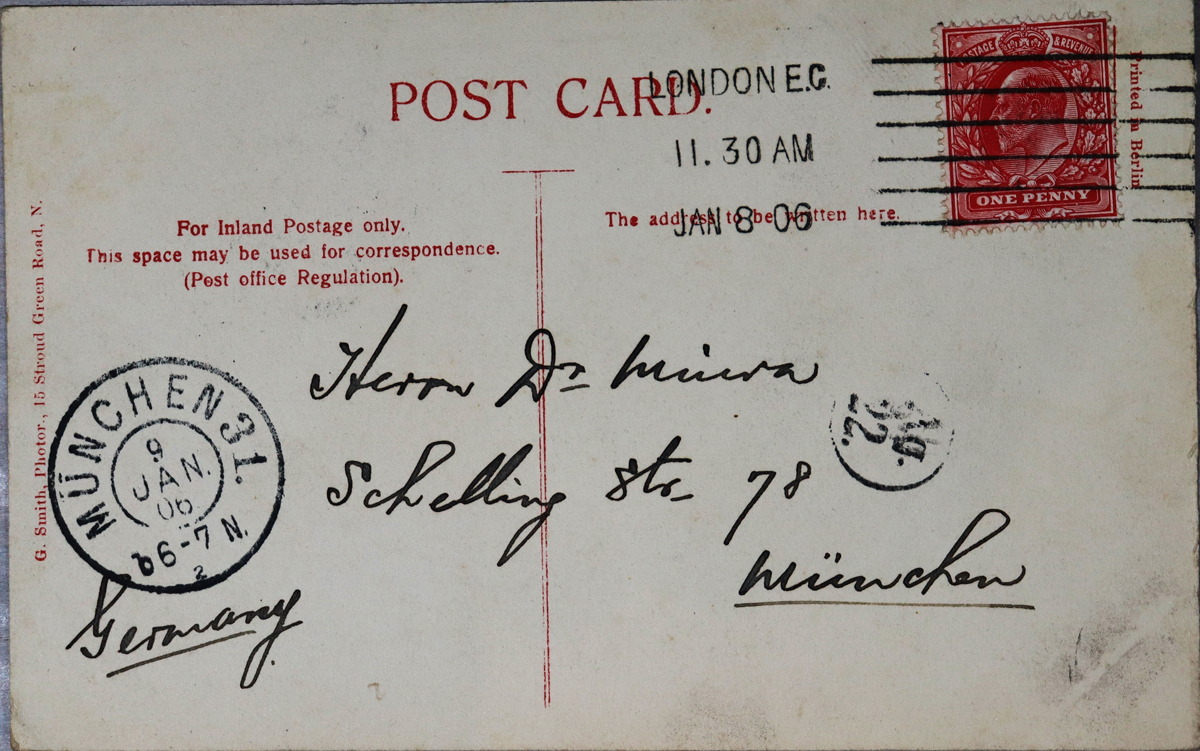 POST CARD.
LONDON E.C.
11.30 AM
JAN 8 06
POSTAGE & REVENUE
ONE PENNY
Printed in Berlin
For Inland Postage only.
This space may be used for correspondence.
(Post office Regulation).
The address to be written here.
G. Smith, Photor., 15 Stroud Green Road, N.
Herrn Dr Miura
Schelling Str. 78
München
Germany
MÜNCHEN 31.
9
JAN.
06
6-7 N.
2